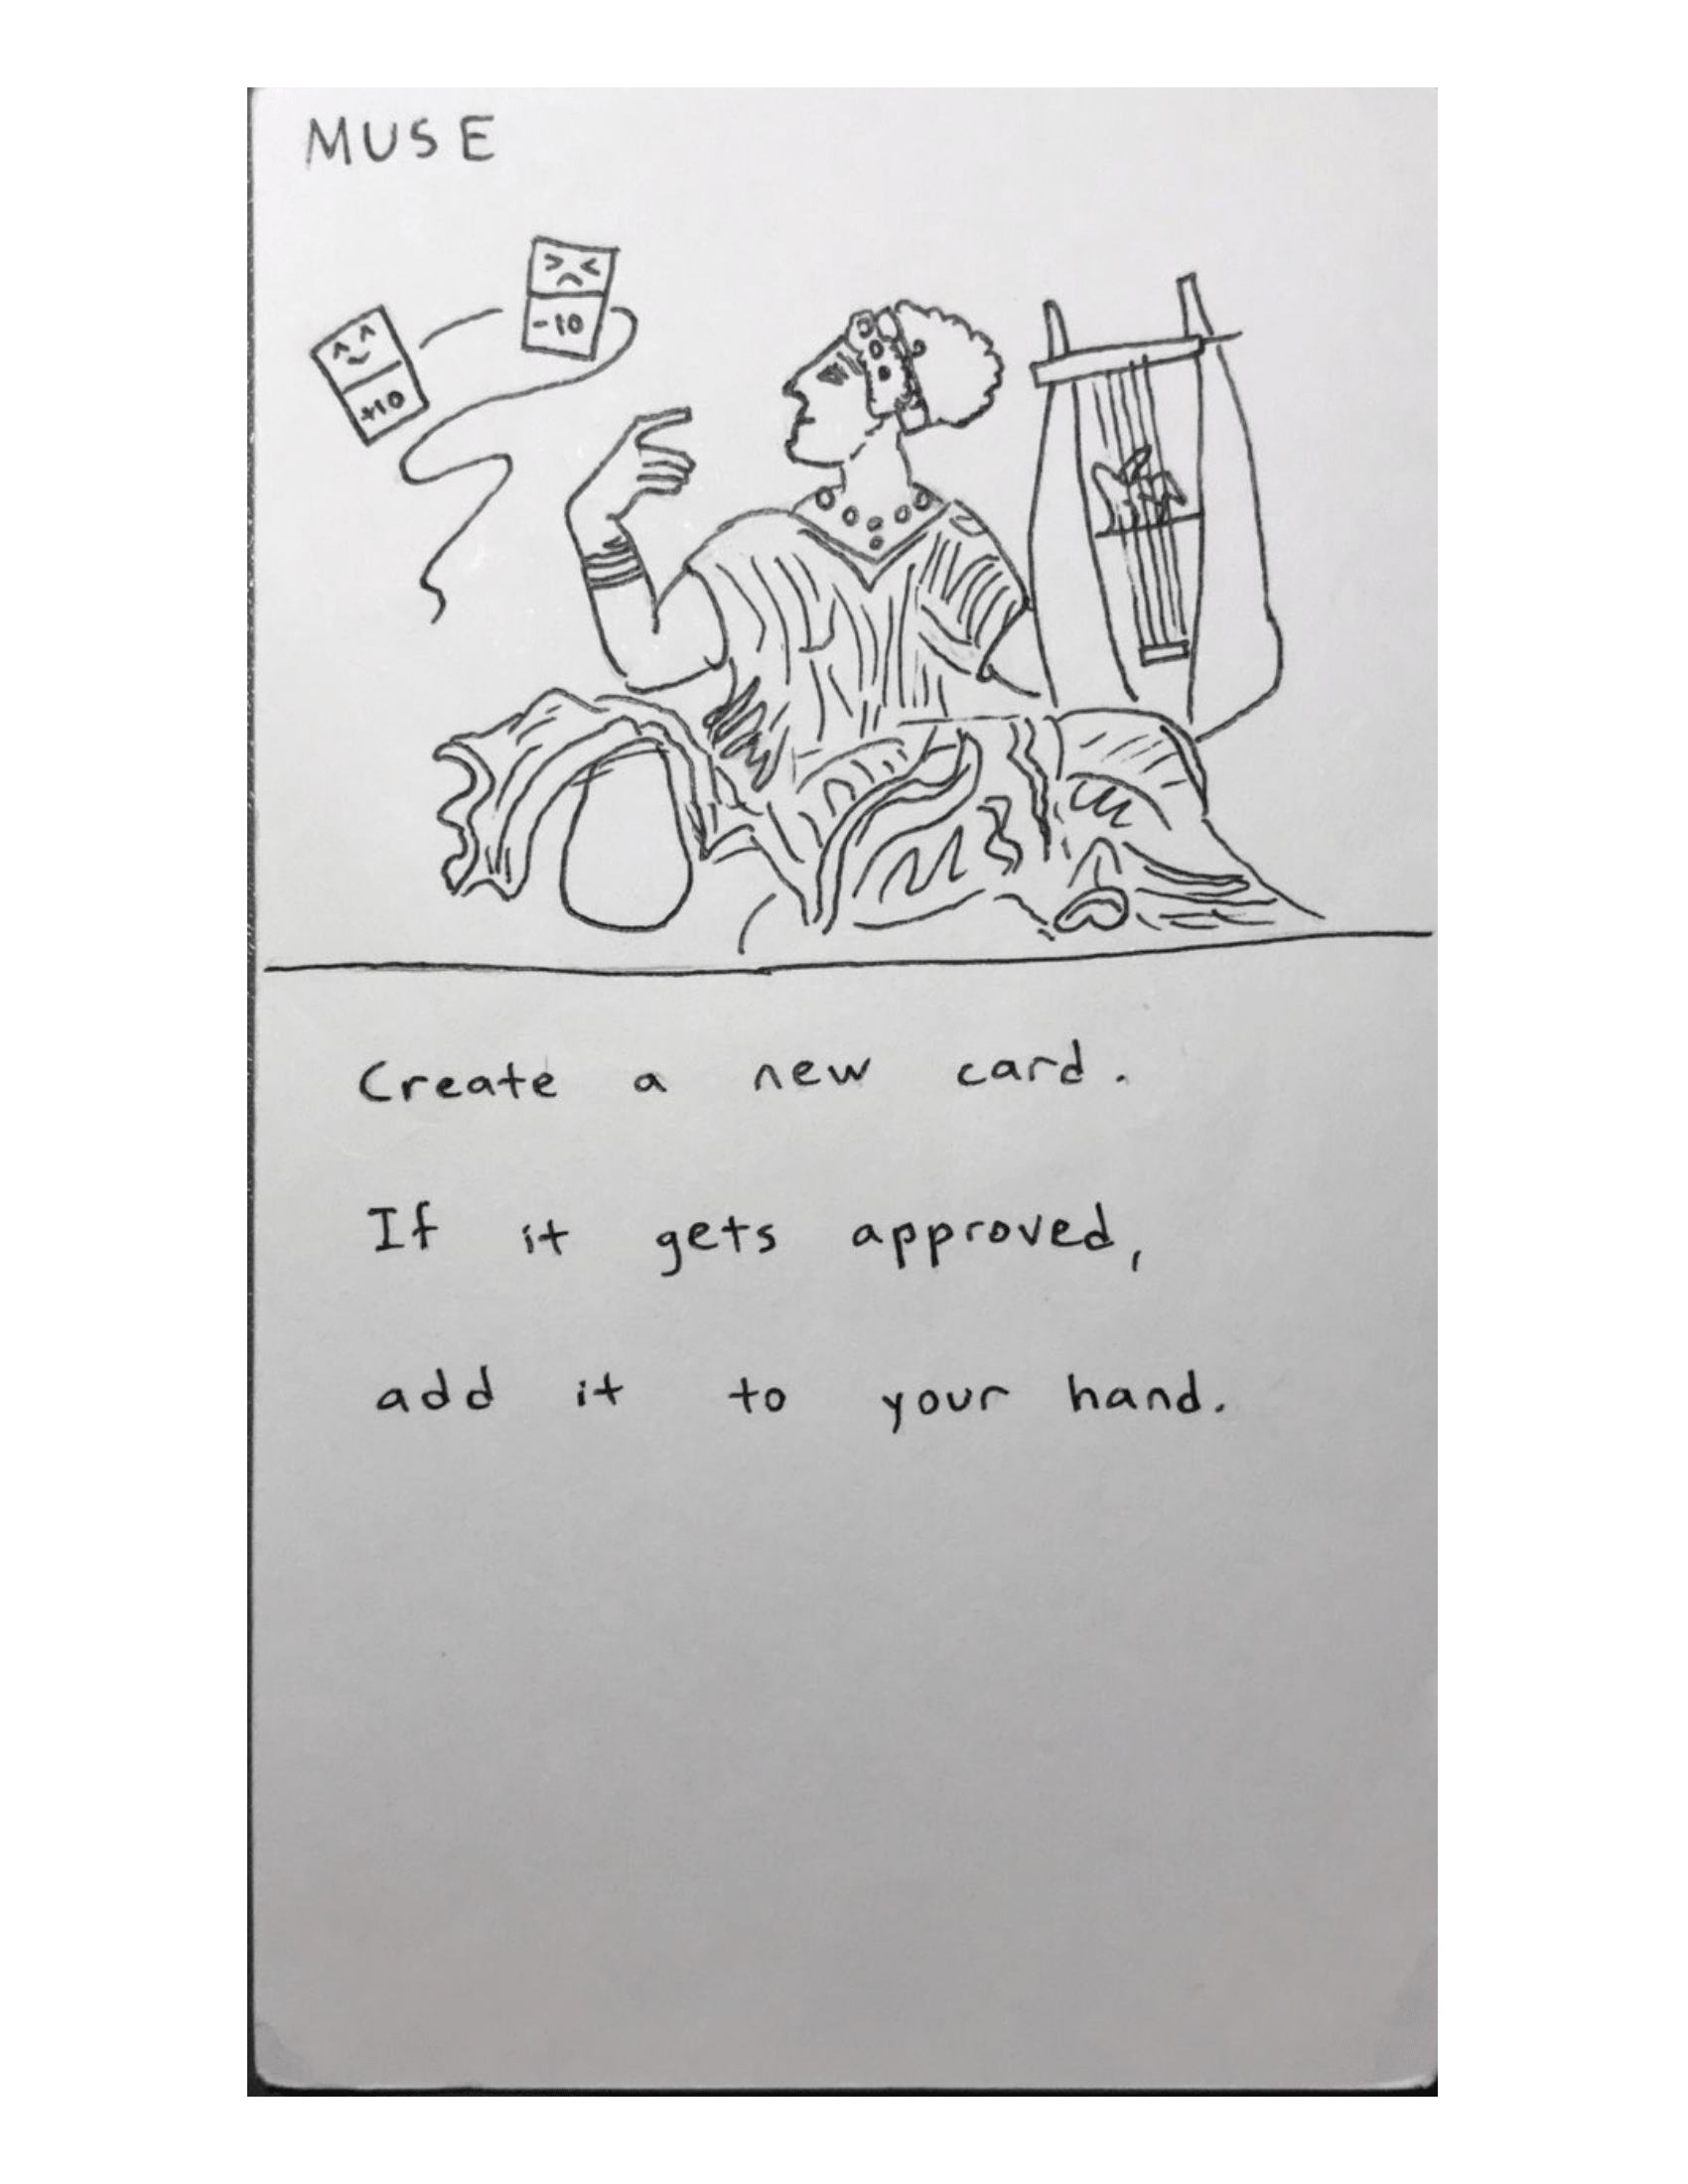 MUSE
-10
+10
Create a new card.
If it gets approved,
add it to your hand.